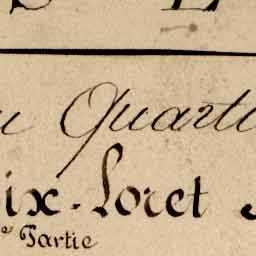 u Quarti
ix-Loret
e Partie